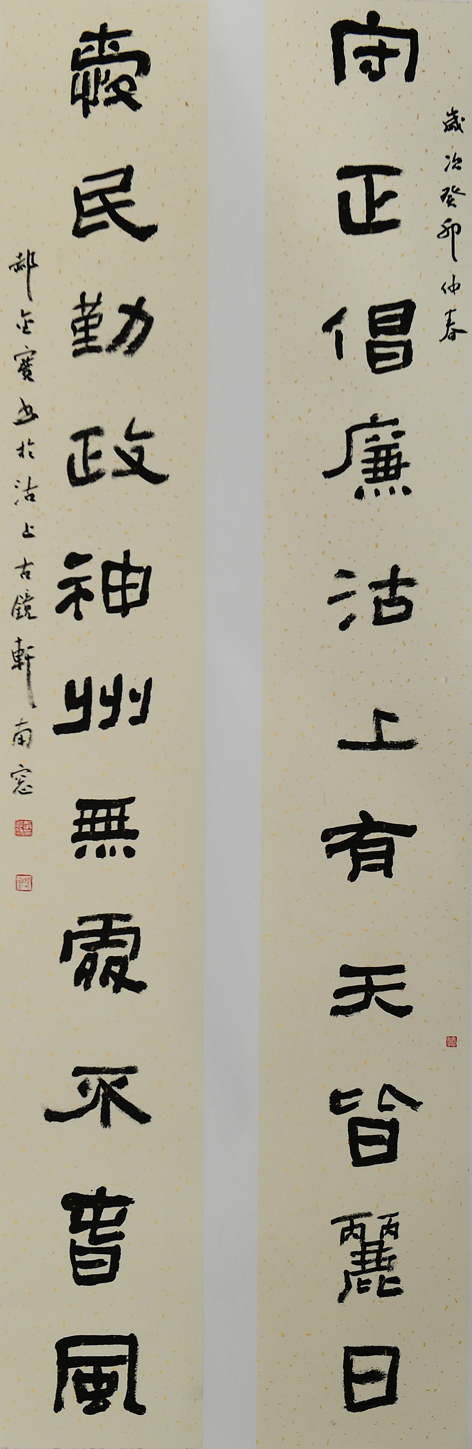 歲次癸卯仲春
守正倡廉沽上有天皆麗日
愛民勤政神州無處不春風
郝金寶書於沽上古鏡軒南窓